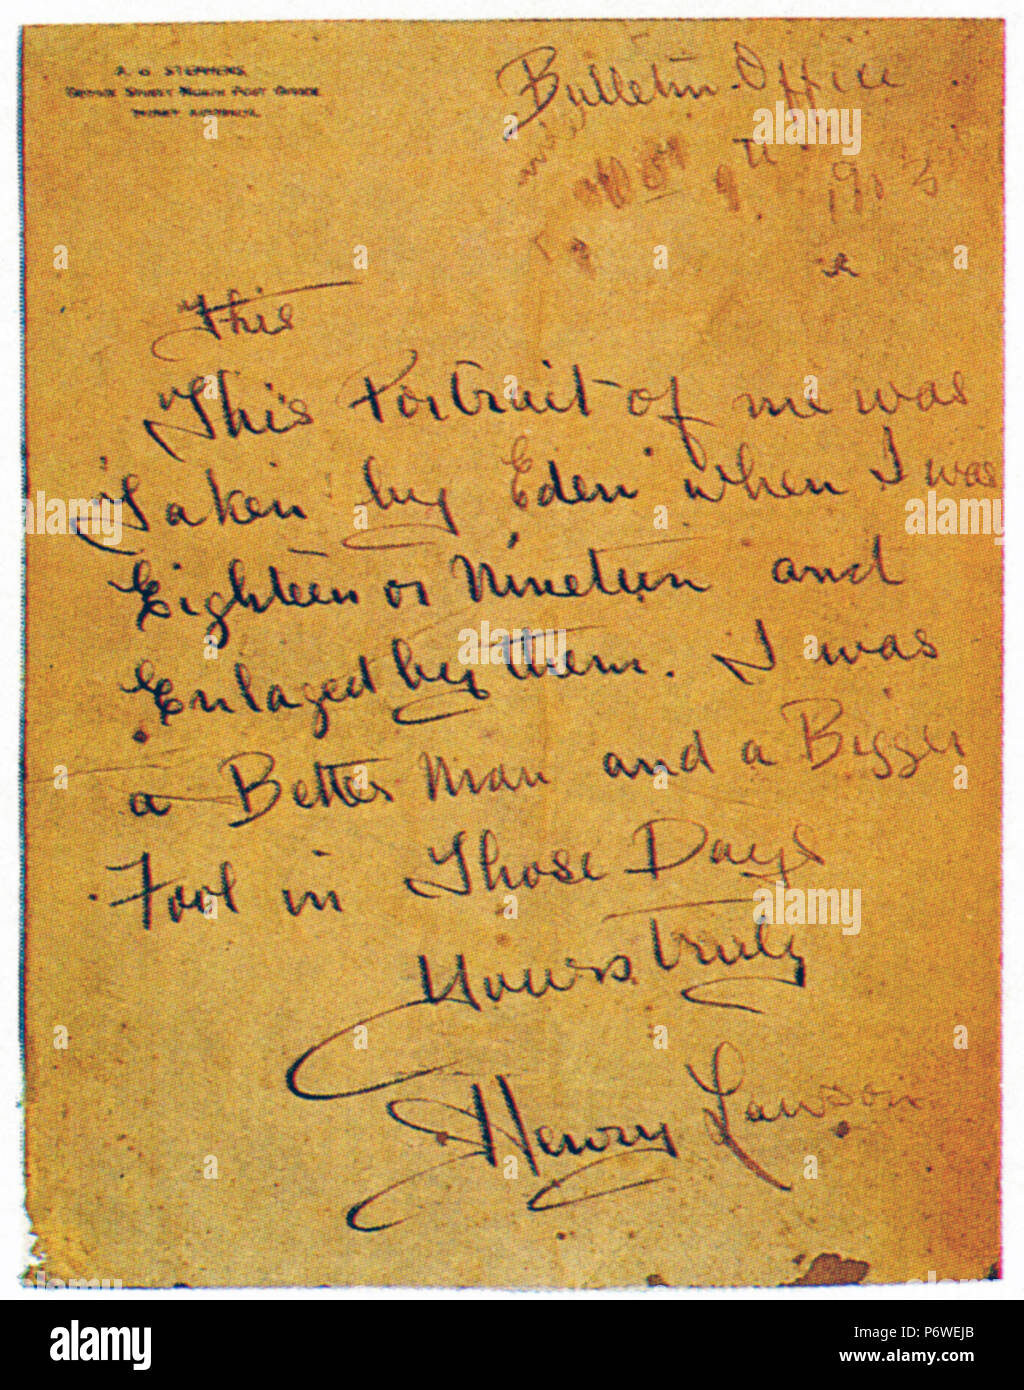 A. G. STEPHENS,
GEORGE STREET NORTH POST OFFICE
SYDNEY AUSTRALIA.
Bulletin Office
9th 1913
This
This Portrait of me was
Taken by Eden when I was
Eighteen or Nineteen and
Enlaged by them. I was
a Better Man and a Bigger
Fool in Those Days
Yours truly
Henry Lawson
alamy
alamy
Image ID: P6WEJB
www.alamy.com